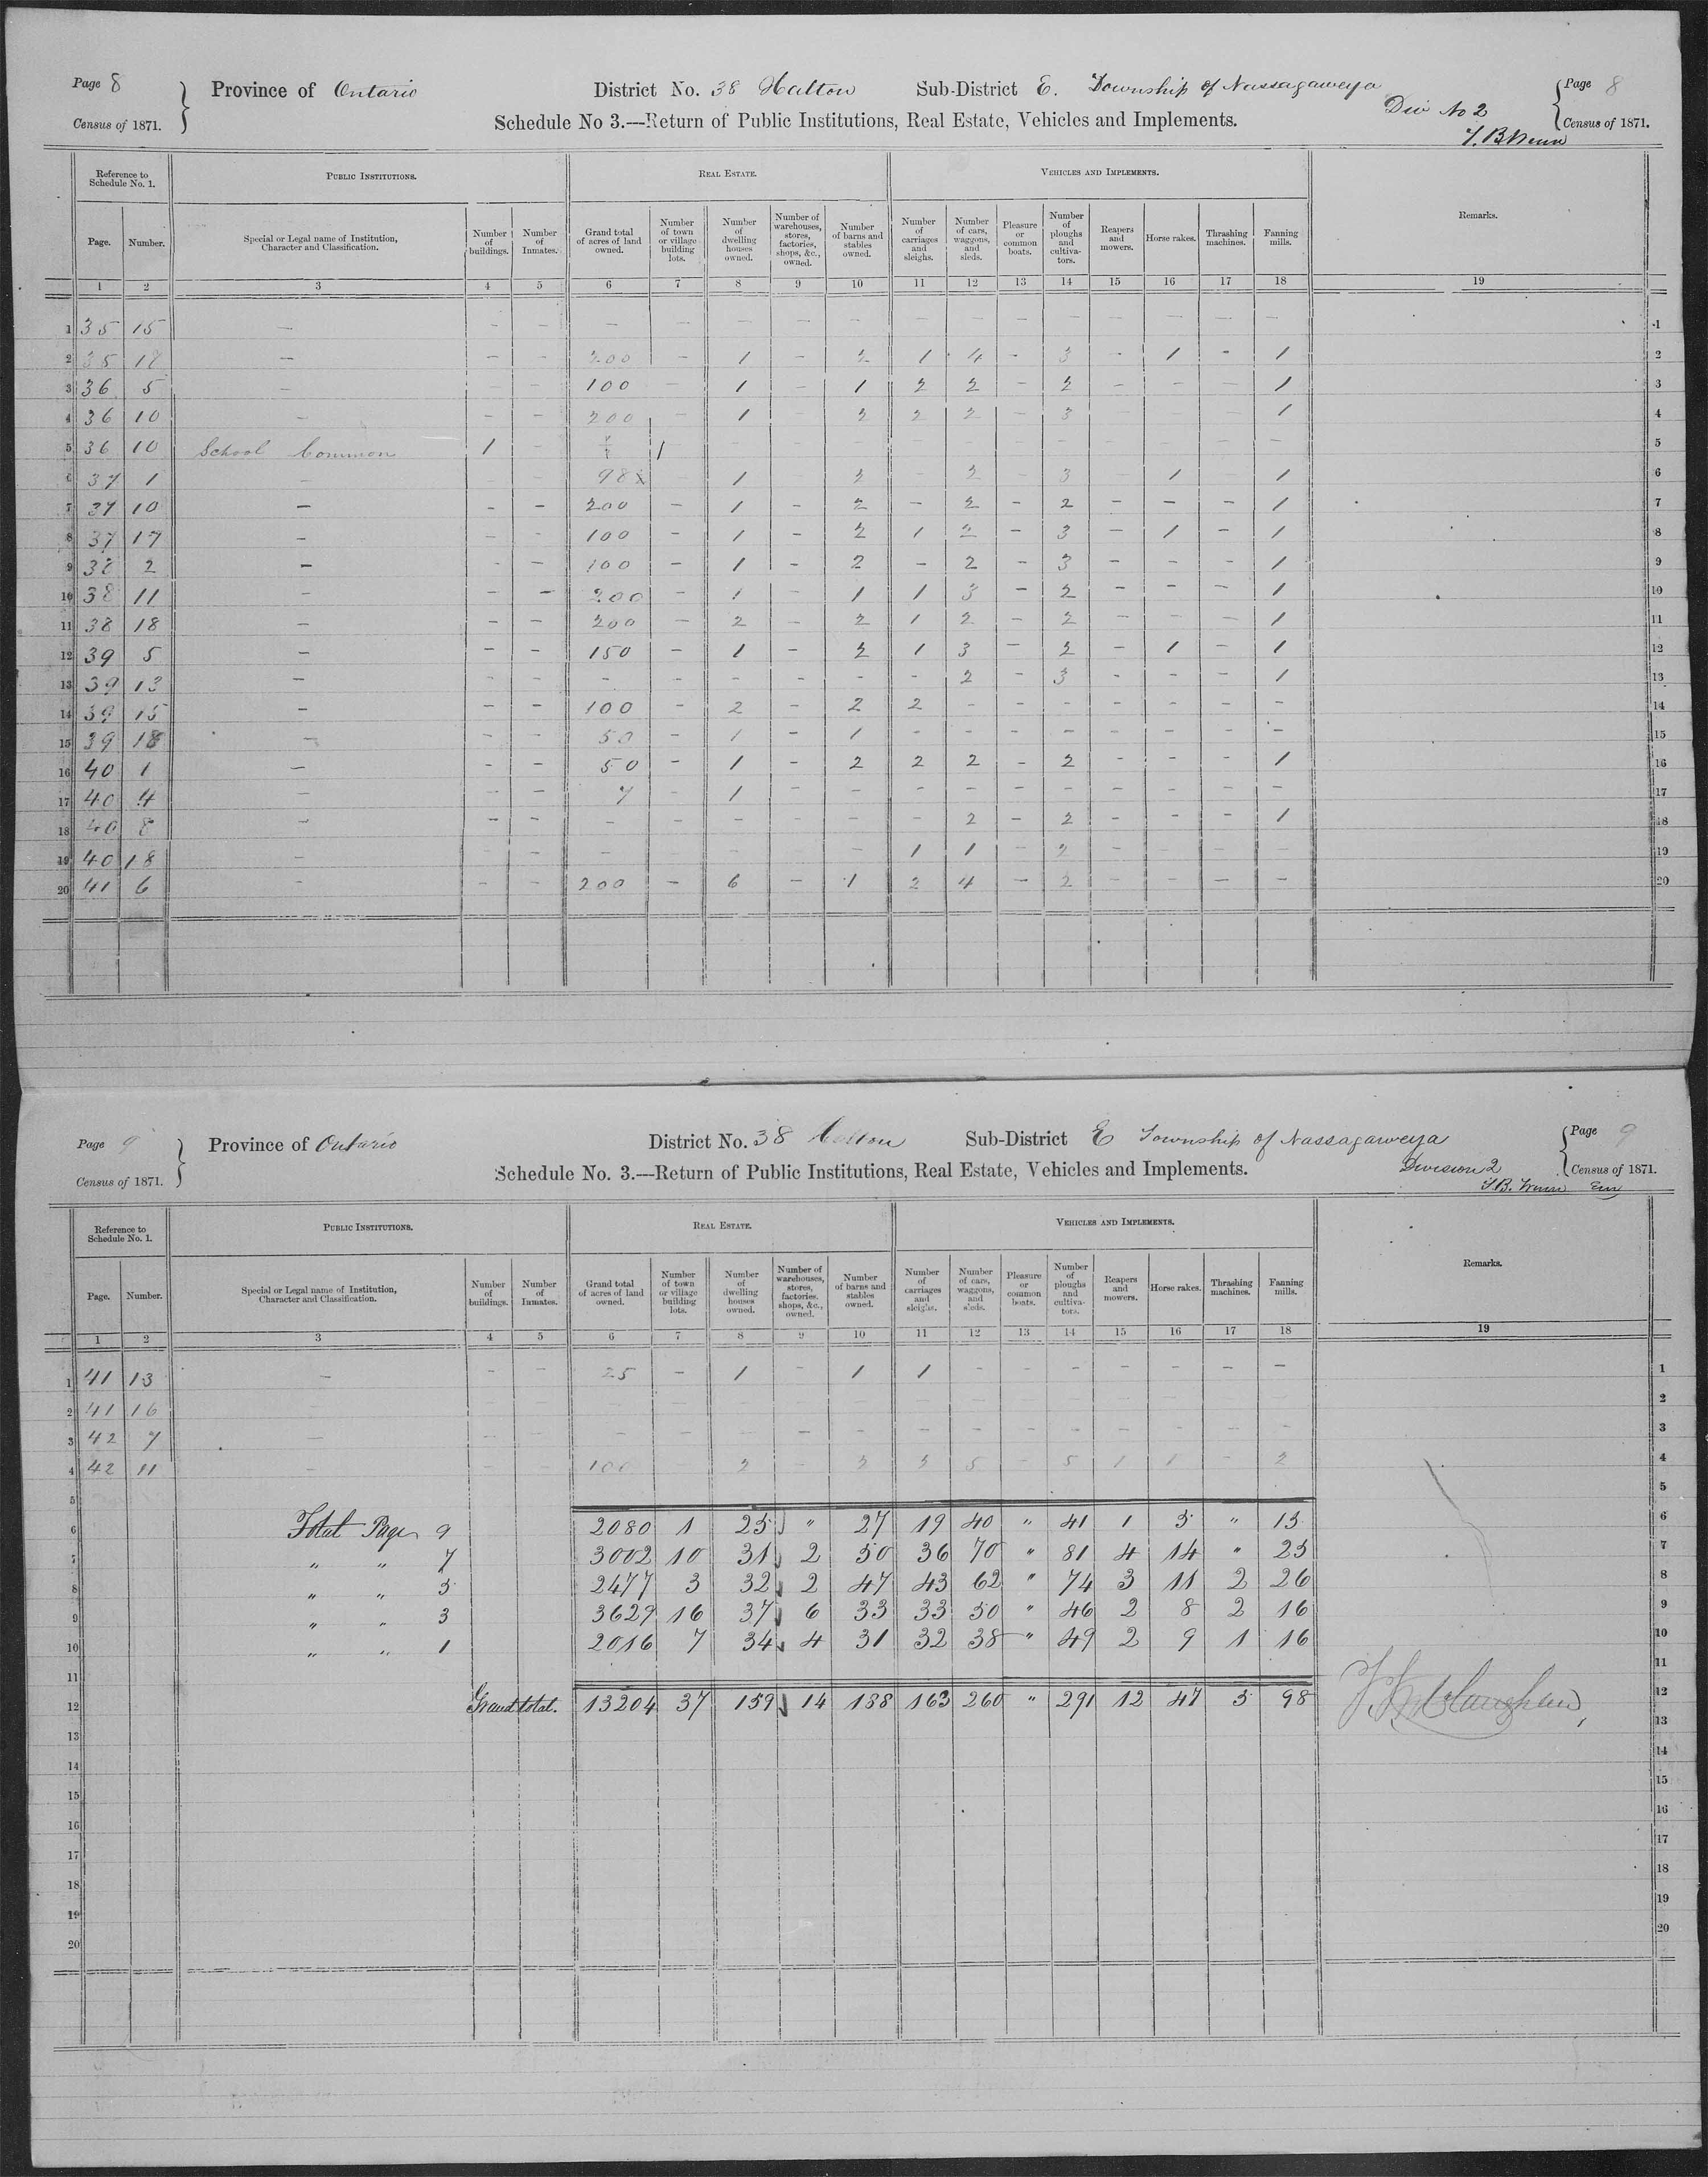 Page 8 Province of Ontario District No. 38 Halton Sub-District E. Township of Nassagaweya Page 8
Census of 1871. Schedule No 3.—Return of Public Institutions, Real Estate, Vehicles and Implements. Div No 2 Census of 1871.
Reference to Schedule No. 1. PUBLIC INSTITUTIONS. REAL ESTATE. VEHICLES AND IMPLEMENTS. Remarks.
Page. Number. Special or Legal name of Institution, Character and Classification. Number of buildings. Number of Inmates. Grand total of acres of land owned. Number of town or village building lots. Number of dwelling houses owned. Number of warehouses, stores, factories, shops, &c., owned. Number of barns and stables owned. Number of carriages and sleighs. Number of cars, waggons, and sleds. Pleasure or common boats. Number of ploughs and cultivators. Reapers and mowers. Horse rakes. Thrashing machines. Fanning mills.
1 2 3 4 5 6 7 8 9 10 11 12 13 14 15 16 17 18 19
1 35 15 — - - - - - - - - - - - - - - - 1
2 35 18 — - - 200 - 1 - 2 1 4 - 3 - 1 - 1 2
3 36 5 — - - 100 - 1 - 1 2 2 - 2 - - - 1 3
4 36 10 — - - 200 - 1 2 2 2 - 3 - - - 1 4
5 36 10 School Common 1 - 1 - - - - - - - - - - - 5
6 37 1 — - - 98 1 2 - 2 3 - 1 1 6
7 37 10 — - - 200 - 1 - 2 - 2 - 2 - - - 1 7
8 37 17 — - - 100 - 1 - 2 1 2 - 3 - 1 - 1 8
9 38 2 — - - 100 - 1 - 2 - 2 - 3 - - - 1 9
10 38 11 — - - 200 - 1 - 1 1 3 - 2 - - - 1 10
11 38 18 — - - 200 - 2 - 2 1 2 - 2 - - - 1 11
12 39 5 — - - 150 - 1 - 2 1 3 - 2 - 1 - 1 12
13 39 13 — - - - - - - - - 2 - 3 - - - 1 13
14 39 15 — - - 100 - 2 - 2 2 - - - - - - - 14
15 39 18 — - - 50 - 1 - 1 - - - - - - - - 15
16 40 1 — - - 50 - 1 - 2 2 2 - 2 - - - 1 16
17 40 4 — - - 7 - 1 - - - - - - - - - - 17
18 40 8 — - - - - - - - - 2 - 2 - - - 1 18
19 40 18 — - - - - - - 1 1 - 2 - - - - 19
20 41 6 - - - 200 - 6 - 1 2 4 - 2 - - - - 20
Page 9 Province of Ontario District No. 38 Halton Sub-District E Township of Nassagaweya Page 9
Census of 1871. Schedule No. 3.—Return of Public Institutions, Real Estate, Vehicles and Implements. Division 2 Census of 1871.
Reference to Schedule No. 1. PUBLIC INSTITUTIONS. REAL ESTATE. VEHICLES AND IMPLEMENTS. Remarks.
Page. Number. Special or Legal name of Institution, Character and Classification. Number of buildings. Number of Inmates. Grand total of acres of land owned. Number of town or village building lots. Number of dwelling houses owned. Number of warehouses, stores, factories. shops, &c., owned. Number of barns and stables owned. Number of carriages and sleighs. Number of cars, waggons, and sleds. Pleasure or common boats. Number of ploughs and cultivators. Reapers and mowers. Horse rakes. Thrashing machines. Fanning mills.
1 2 3 4 5 6 7 8 9 10 11 12 13 14 15 16 17 18 19
1 41 13 — - - 25 - 1 - 1 1 - - - - - - - 1
2 41 16 2
3 42 7 — - - - - - - - - - - - - - - 3
4 42 11 - - - 100 2 - 3 3 5 - 5 1 1 - 2 4
5 5
6 Total Page 9 2080 1 25 " 27 19 40 " 41 1 5 " 15 6
7 " " 7 3002 10 31 2 50 36 70 " 81 4 14 " 25 7
8 " " 5 2477 3 32 2 47 43 62 " 74 3 11 2 26 8
9 " " 3 3629 16 37 6 33 33 50 " 46 2 8 2 16 9
10 " " 1 2016 7 34 4 31 32 38 " 49 2 9 1 16 10
11 11
12 Grand total. 13204 37 159 14 188 163 260 " 291 12 47 5 98 12
13 13
14 14
15 15
16 16
17 17
18 18
19 19
20 20